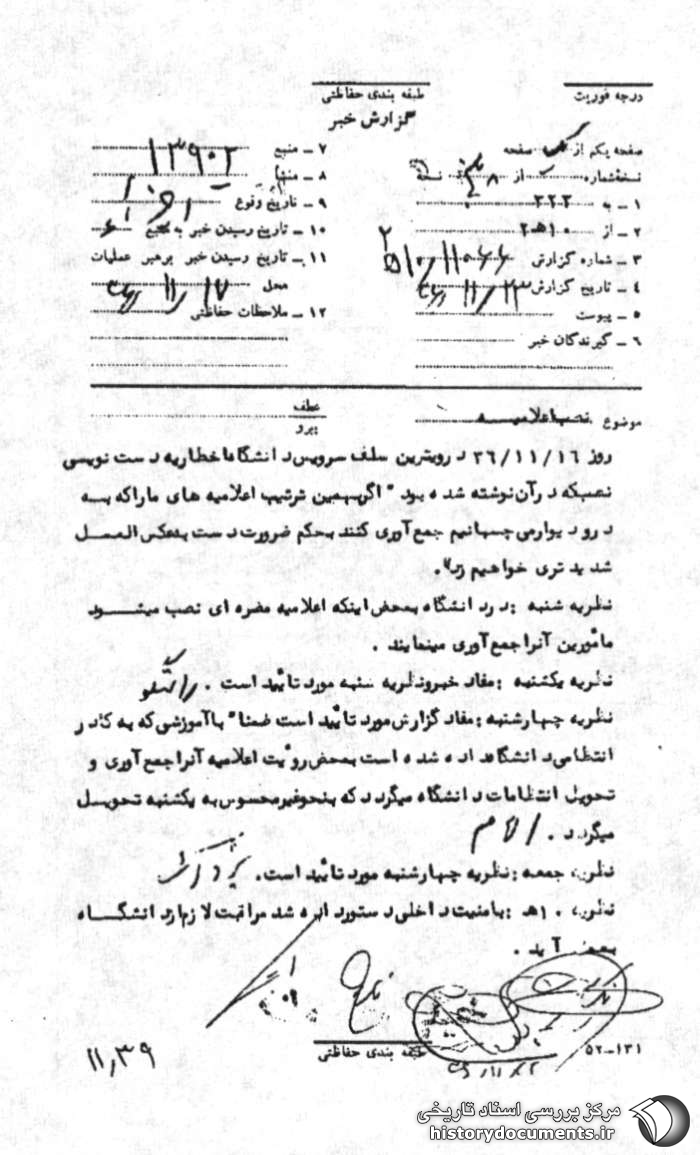 درجه فوریت
طبقه بندی حفاظتی
گزارش خبر
صفحه یکم از یک صفحه
نسخه شماره از ۸ نسخه
۱ ــ به ۳۲۲
۲ ــ از ۱۰ه۲
۳ ــ شماره گزارش
۴ ــ تاریخ گزارش ۱۱/۲۳
۵ ــ پیوست
۶ ــ گیرندگان خبر
۷ ــ منبع ۱۳۹۰۲
۸ ــ منشاء
۹ ــ تاریخ وقوع
۱۰ ــ تاریخ رسیدن خبر به منبع
۱۱ ــ تاریخ رسیدن خبر برهبر عملیات
محل ۱۱/۱۷
۱۲ ــ ملاحظات حفاظتی
موضوع نصب اعلامیه
عطف
پیرو
روز ۳۶/۱۱/۱۶ در ویترین سلف سرویس دانشگاه اخطاریه دست نویسی
نصب که در آن نوشته شده بود " اگر بهمین ترتیب اعلامیه های ما را که به
در و دیوار می چسبانیم جمع آوری کنند بحکم ضرورت دست بعکس العمل
شدیدتری خواهیم زد".
نظریه شنبه : در دانشگاه بمحض اینکه اعلامیه مضره ای نصب میشود
مأمورین آنرا جمع آوری مینمایند .
نظریه یکشنبه : مفاد خبر و نظریه شنبه مورد تأیید است .
نظریه چهارشنبه : مفاد گزارش مورد تأیید است ضمنا" با آموزشی که به کادر
انتظامی دانشگاه داده شده است بمحض رویت اعلامیه آنرا جمع آوری و
تحویل انتظامات دانشگاه میگردد که بنحو غیر محسوس به یکشنبه تحویل
میگردد .
نظریه جمعه : نظریه چهارشنبه مورد تأیید است .
نظریه ۱۰ه : بامنیت داخلی دستور داده شد مراقبت لازم از دانشگاه
بعمل آید .
طبقه بندی حفاظتی
۵۲ــ۱۳۱
۱۱٫۳۹
مرکز بررسی اسناد تاریخی
historydocuments.ir